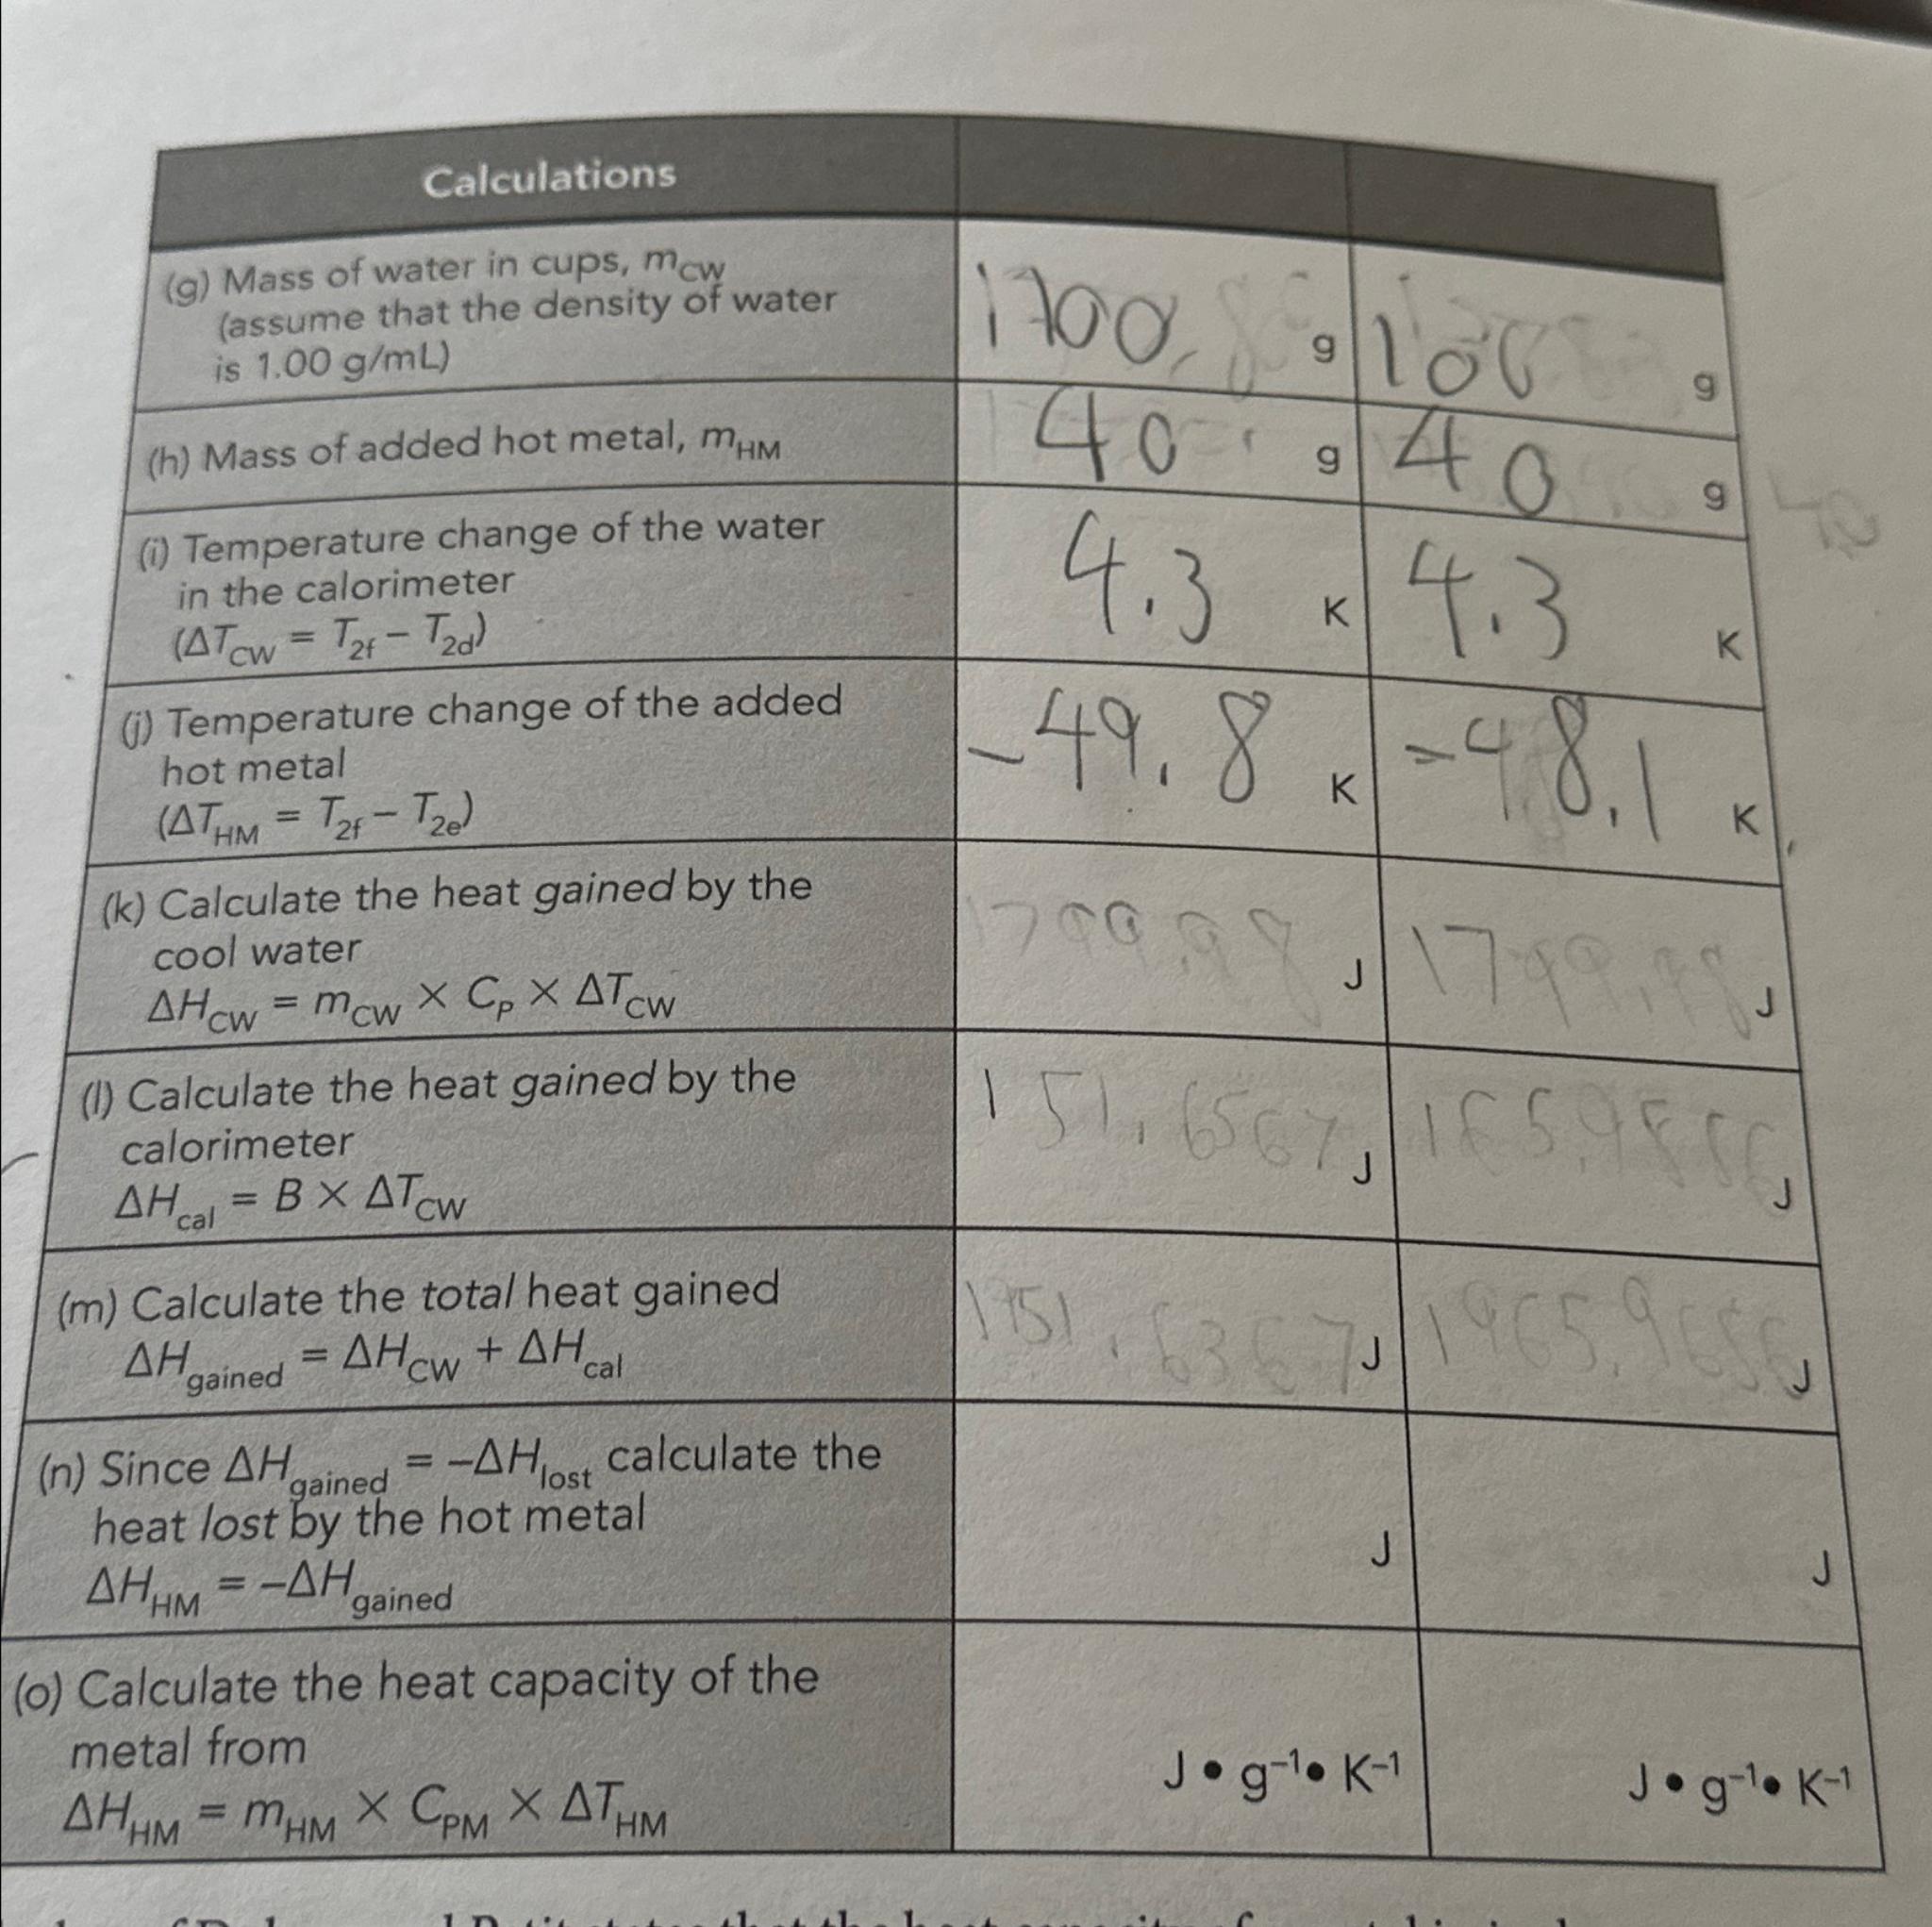 Calculations
(g) Mass of water in cups, mCW
(assume that the density of water
is 1.00 g/mL)
1700. g
100 g
(h) Mass of added hot metal, mHM
40 g
40 g
(i) Temperature change of the water
in the calorimeter
(ΔTCW = T2f − T2d)
4.3 K
4.3 K
(j) Temperature change of the added
hot metal
(ΔTHM = T2f − T2e)
-49.8 K
-48.1 K
(k) Calculate the heat gained by the
cool water
ΔHCW = mCW × CP × ΔTCW
1799.98 J
1799.98 J
(l) Calculate the heat gained by the
calorimeter
ΔHcal = B × ΔTCW
J
J
(m) Calculate the total heat gained
ΔHgained = ΔHCW + ΔHcal
J
J
(n) Since ΔHgained = −ΔHlost calculate the
heat lost by the hot metal
ΔHHM = −ΔHgained
J
J
(o) Calculate the heat capacity of the
metal from
ΔHHM = mHM × CPM × ΔTHM
J • g⁻¹• K⁻¹
J • g⁻¹• K⁻¹